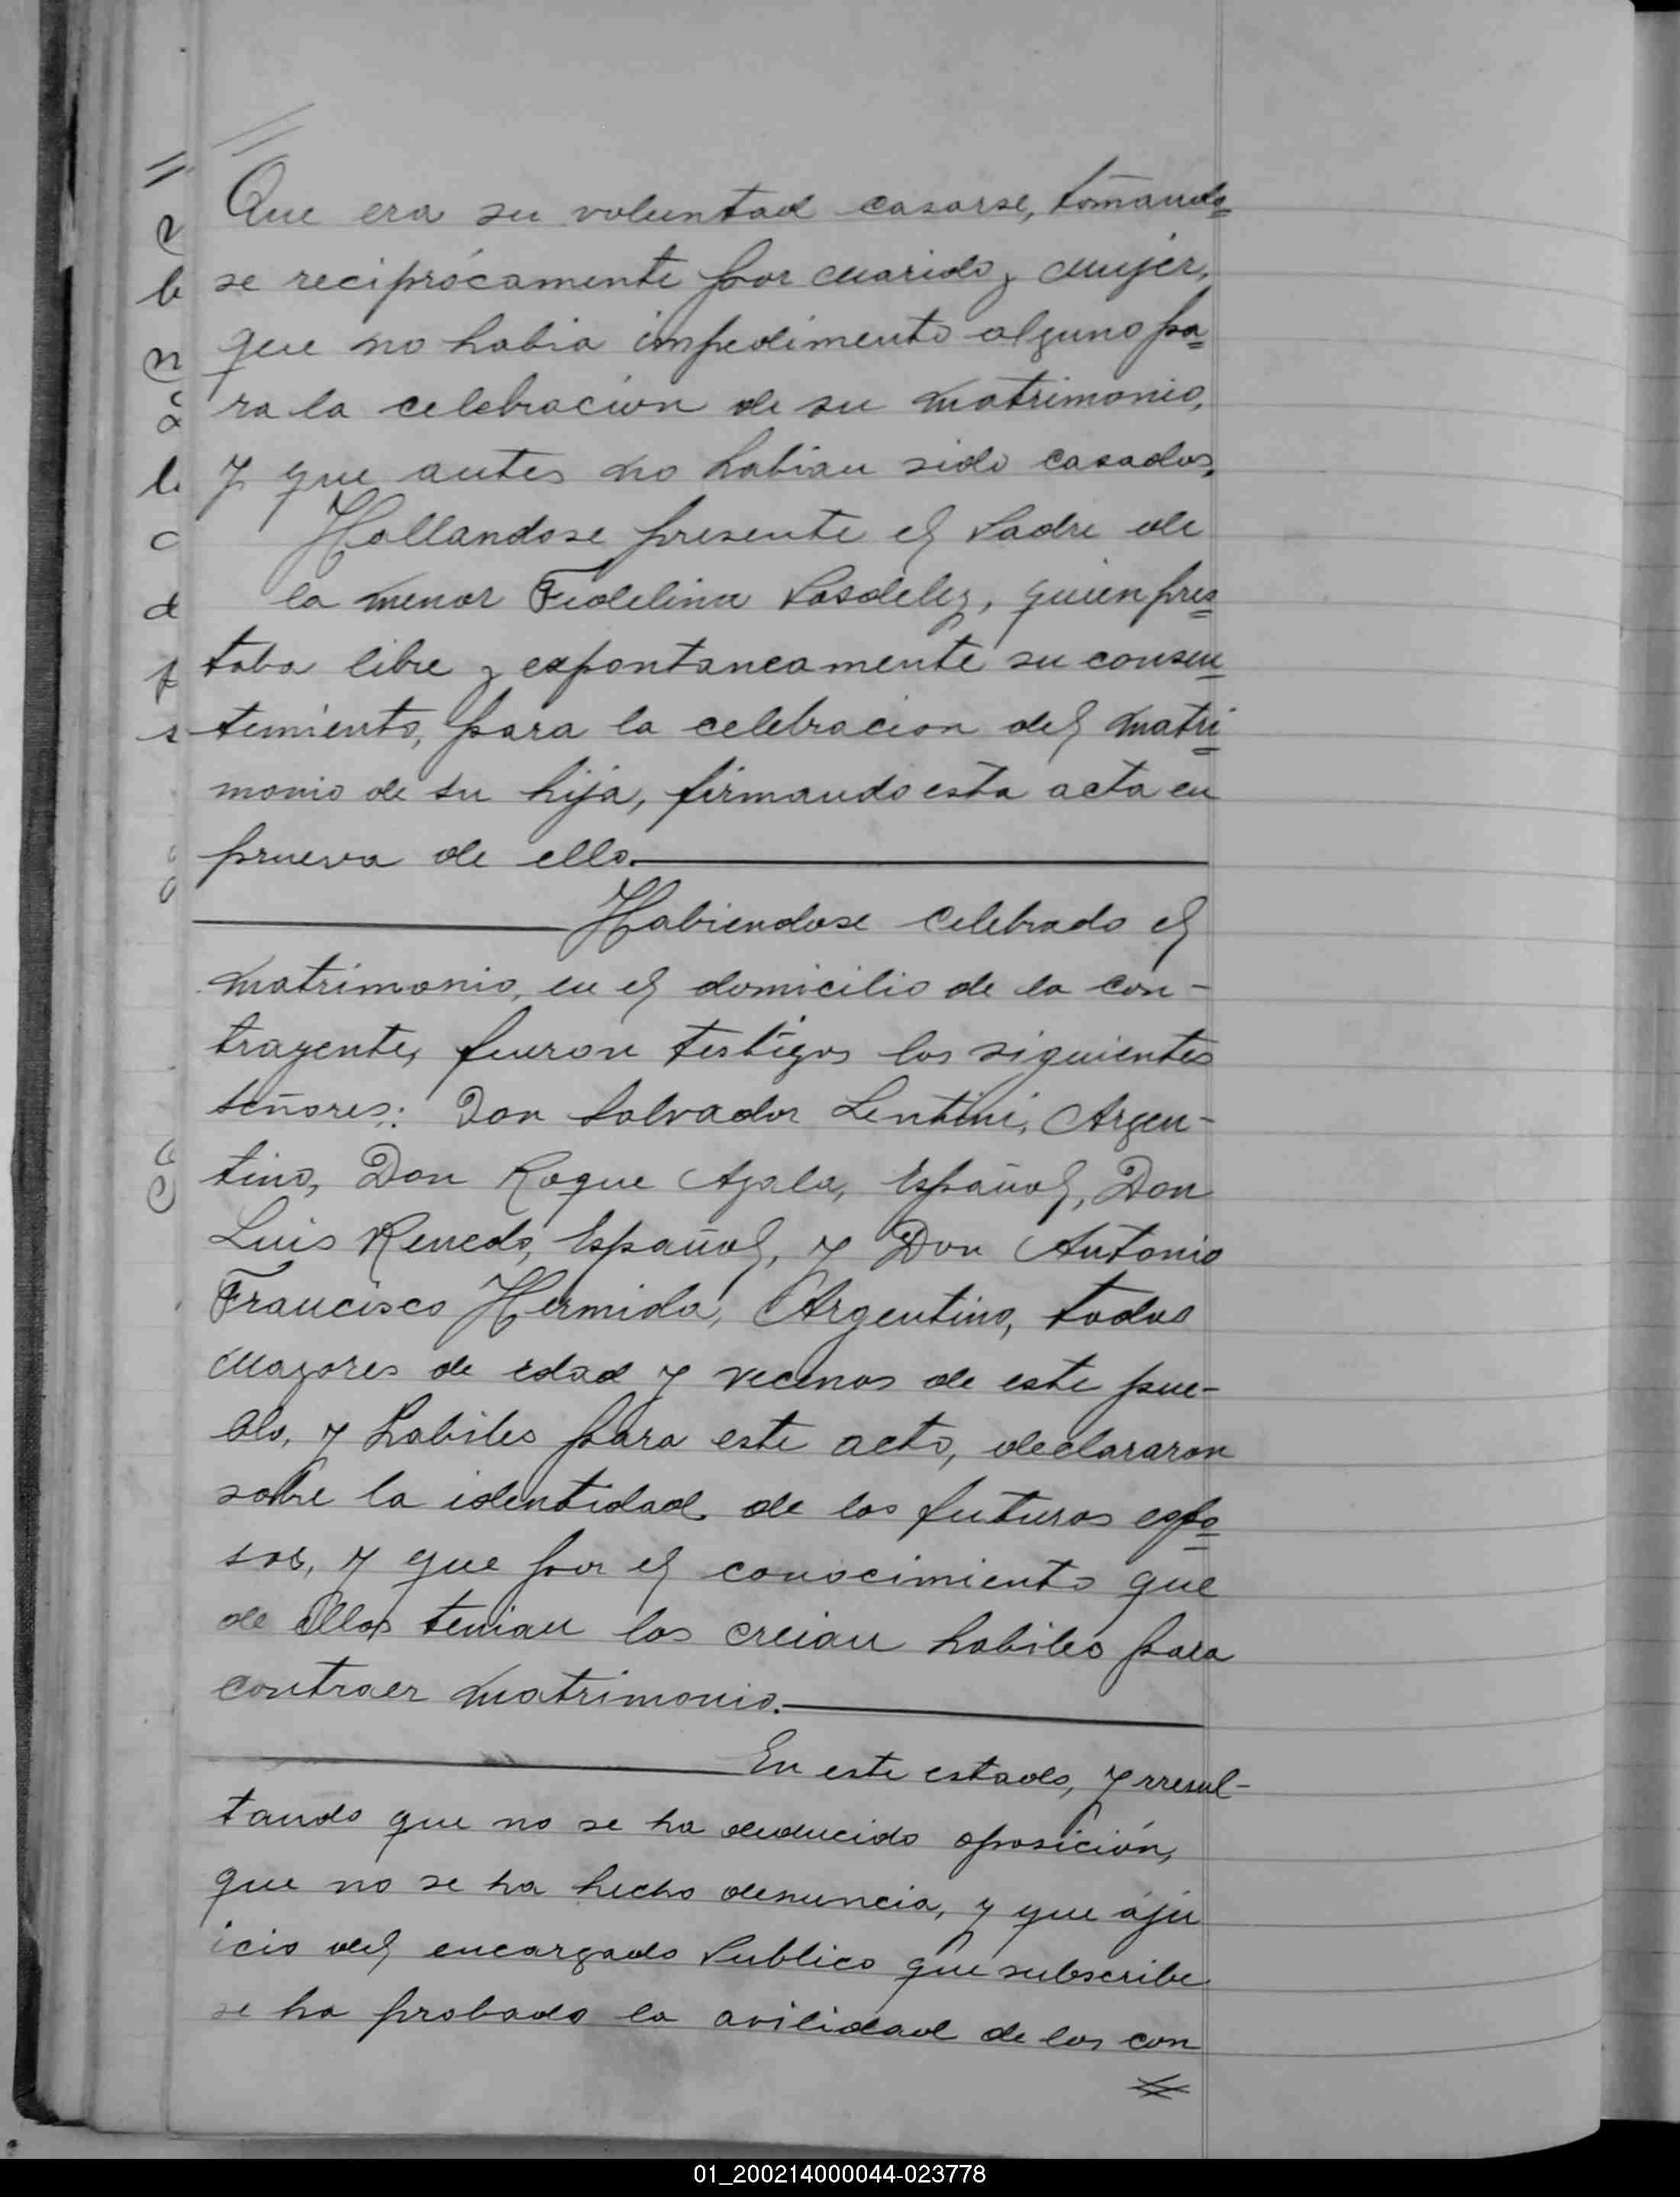 Que era su voluntad casarse, tomando=
se reciprócamente por marido y mujer,
que no habia impedimento alguno pa=
ra la celebración de su matrimonio,
y que antes no habian sido casados,
Hallandose presente el Padre de
la menor Fidelina Posdeley, quien pres=
taba libre y expontaneamente su consen=
temiento, para la celebracion del matri=
monio de su hija, firmando esta acta en
prueva de ello.
Habiendose celebrado el
matrimonio, en el domicilio de la con-
trayente, fueron testigos los siguientes
señores: Don Salvador Lentini, Argen-
tino, Don Roque Ayala, Español, Don
Luis Renedo, Español, y Don Antonio
Francisco Hermida, Argentino, todos
mayores de edad y vecinos de este pue-
blo, y habiles para este acto, declararon
sobre la identidad de los futuros espo=
sos, y que por el conocimiento que
de ellos tenian los creian habiles para
contraer matrimonio.
En este estado, y rresul-
tando que no se ha deducido oposición,
que no se ha hecho denuncia, y que áju
icio del encargado Publico que subscribe
se ha probado la avilidad de los con
01_200214000044-023778